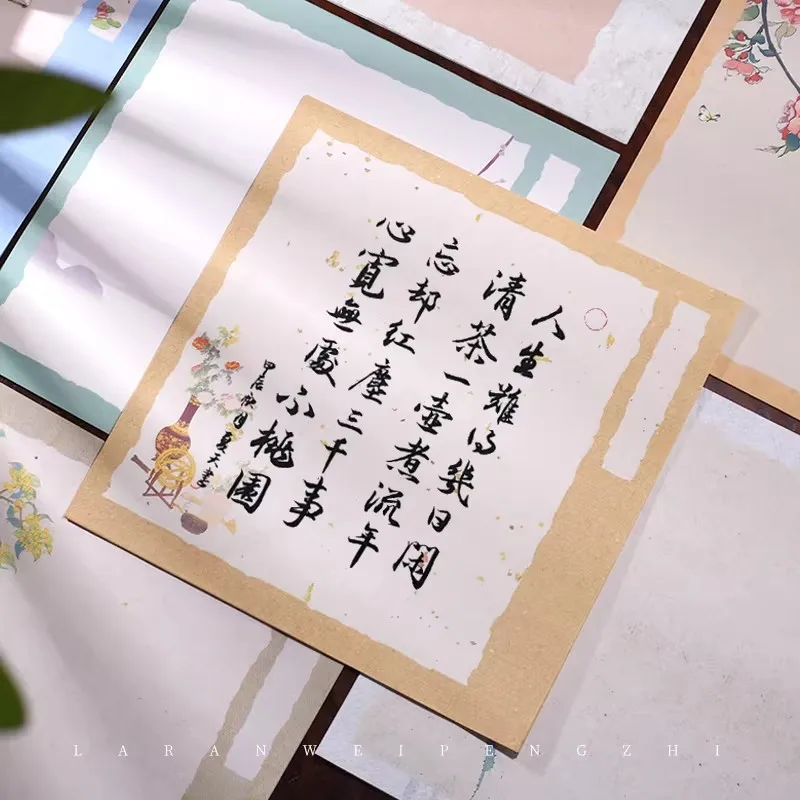 人生難得幾日閑
清茶一壺煮流年
忘却紅塵三千事
心寬無處不桃園
甲辰秋月
LARANWEIPENGZHI